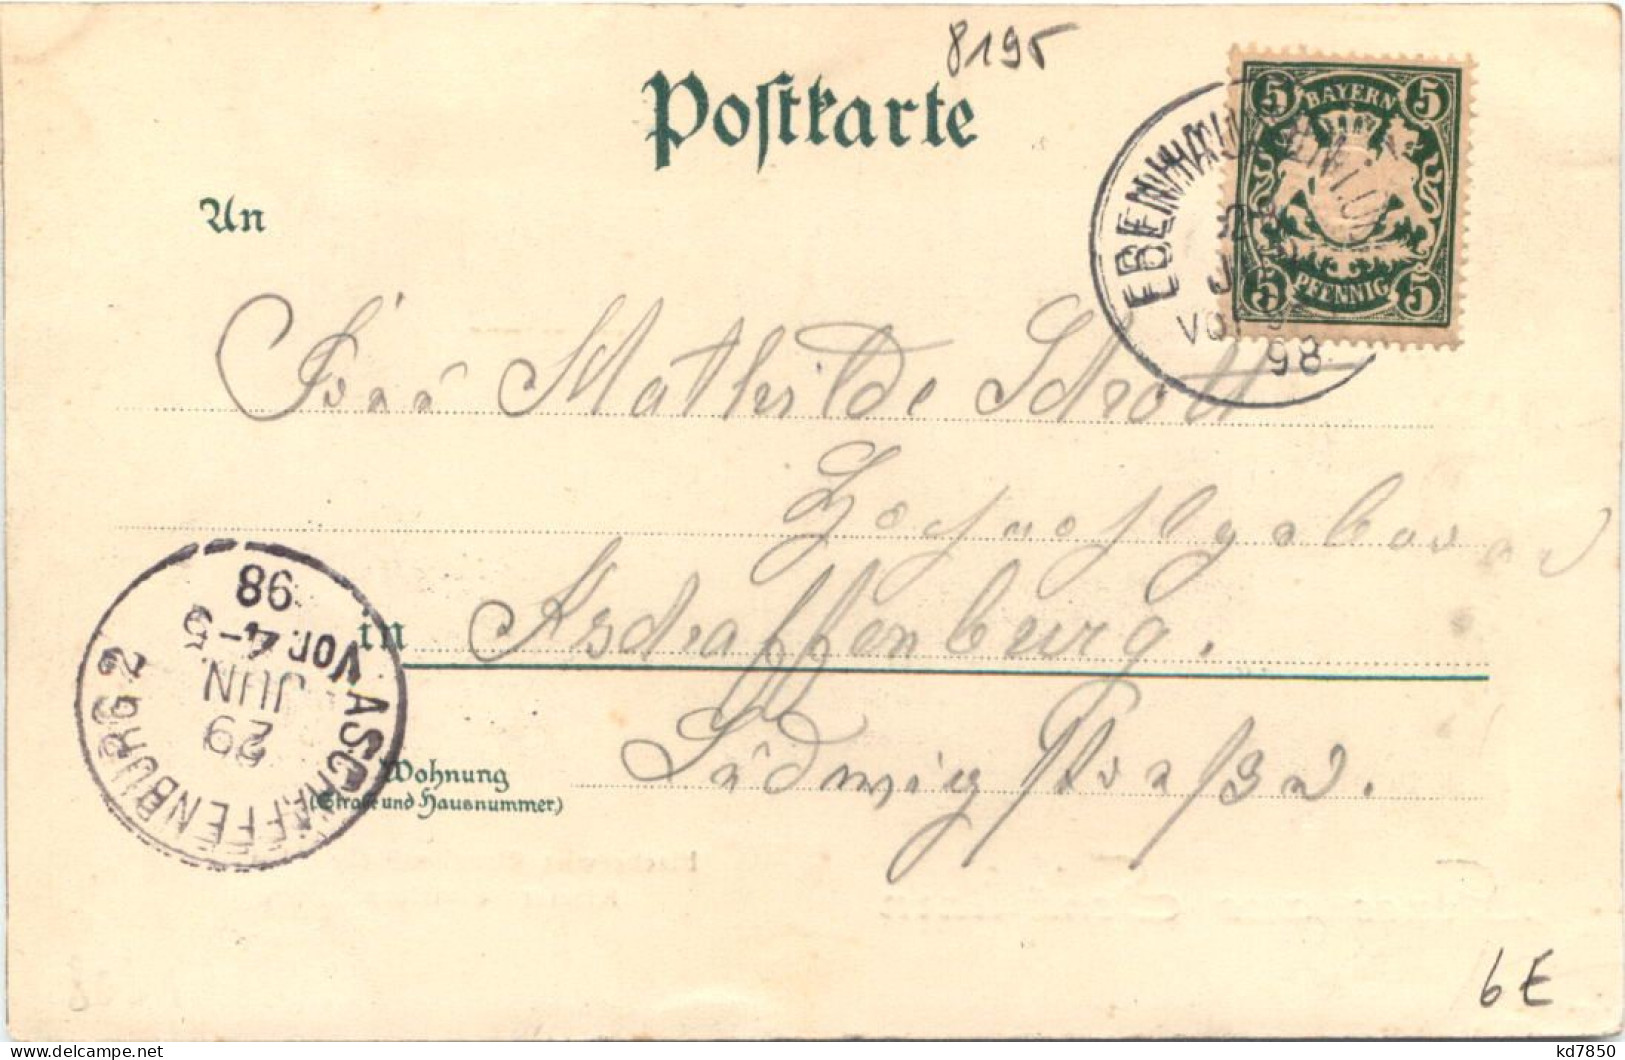 8195
Postkarte
5 BAYERN 5
5 PFENNIG 5
EBENHAUSEN
VOR
98
An
Frau Mathilde Schroll
in Aschaffenburg.
98
Vor. 4-5
JUN
29
ASCHAFFENBURG 2
Wohnung
(Straße und Hausnummer)
Ludwigstraße.
6E
kd7850